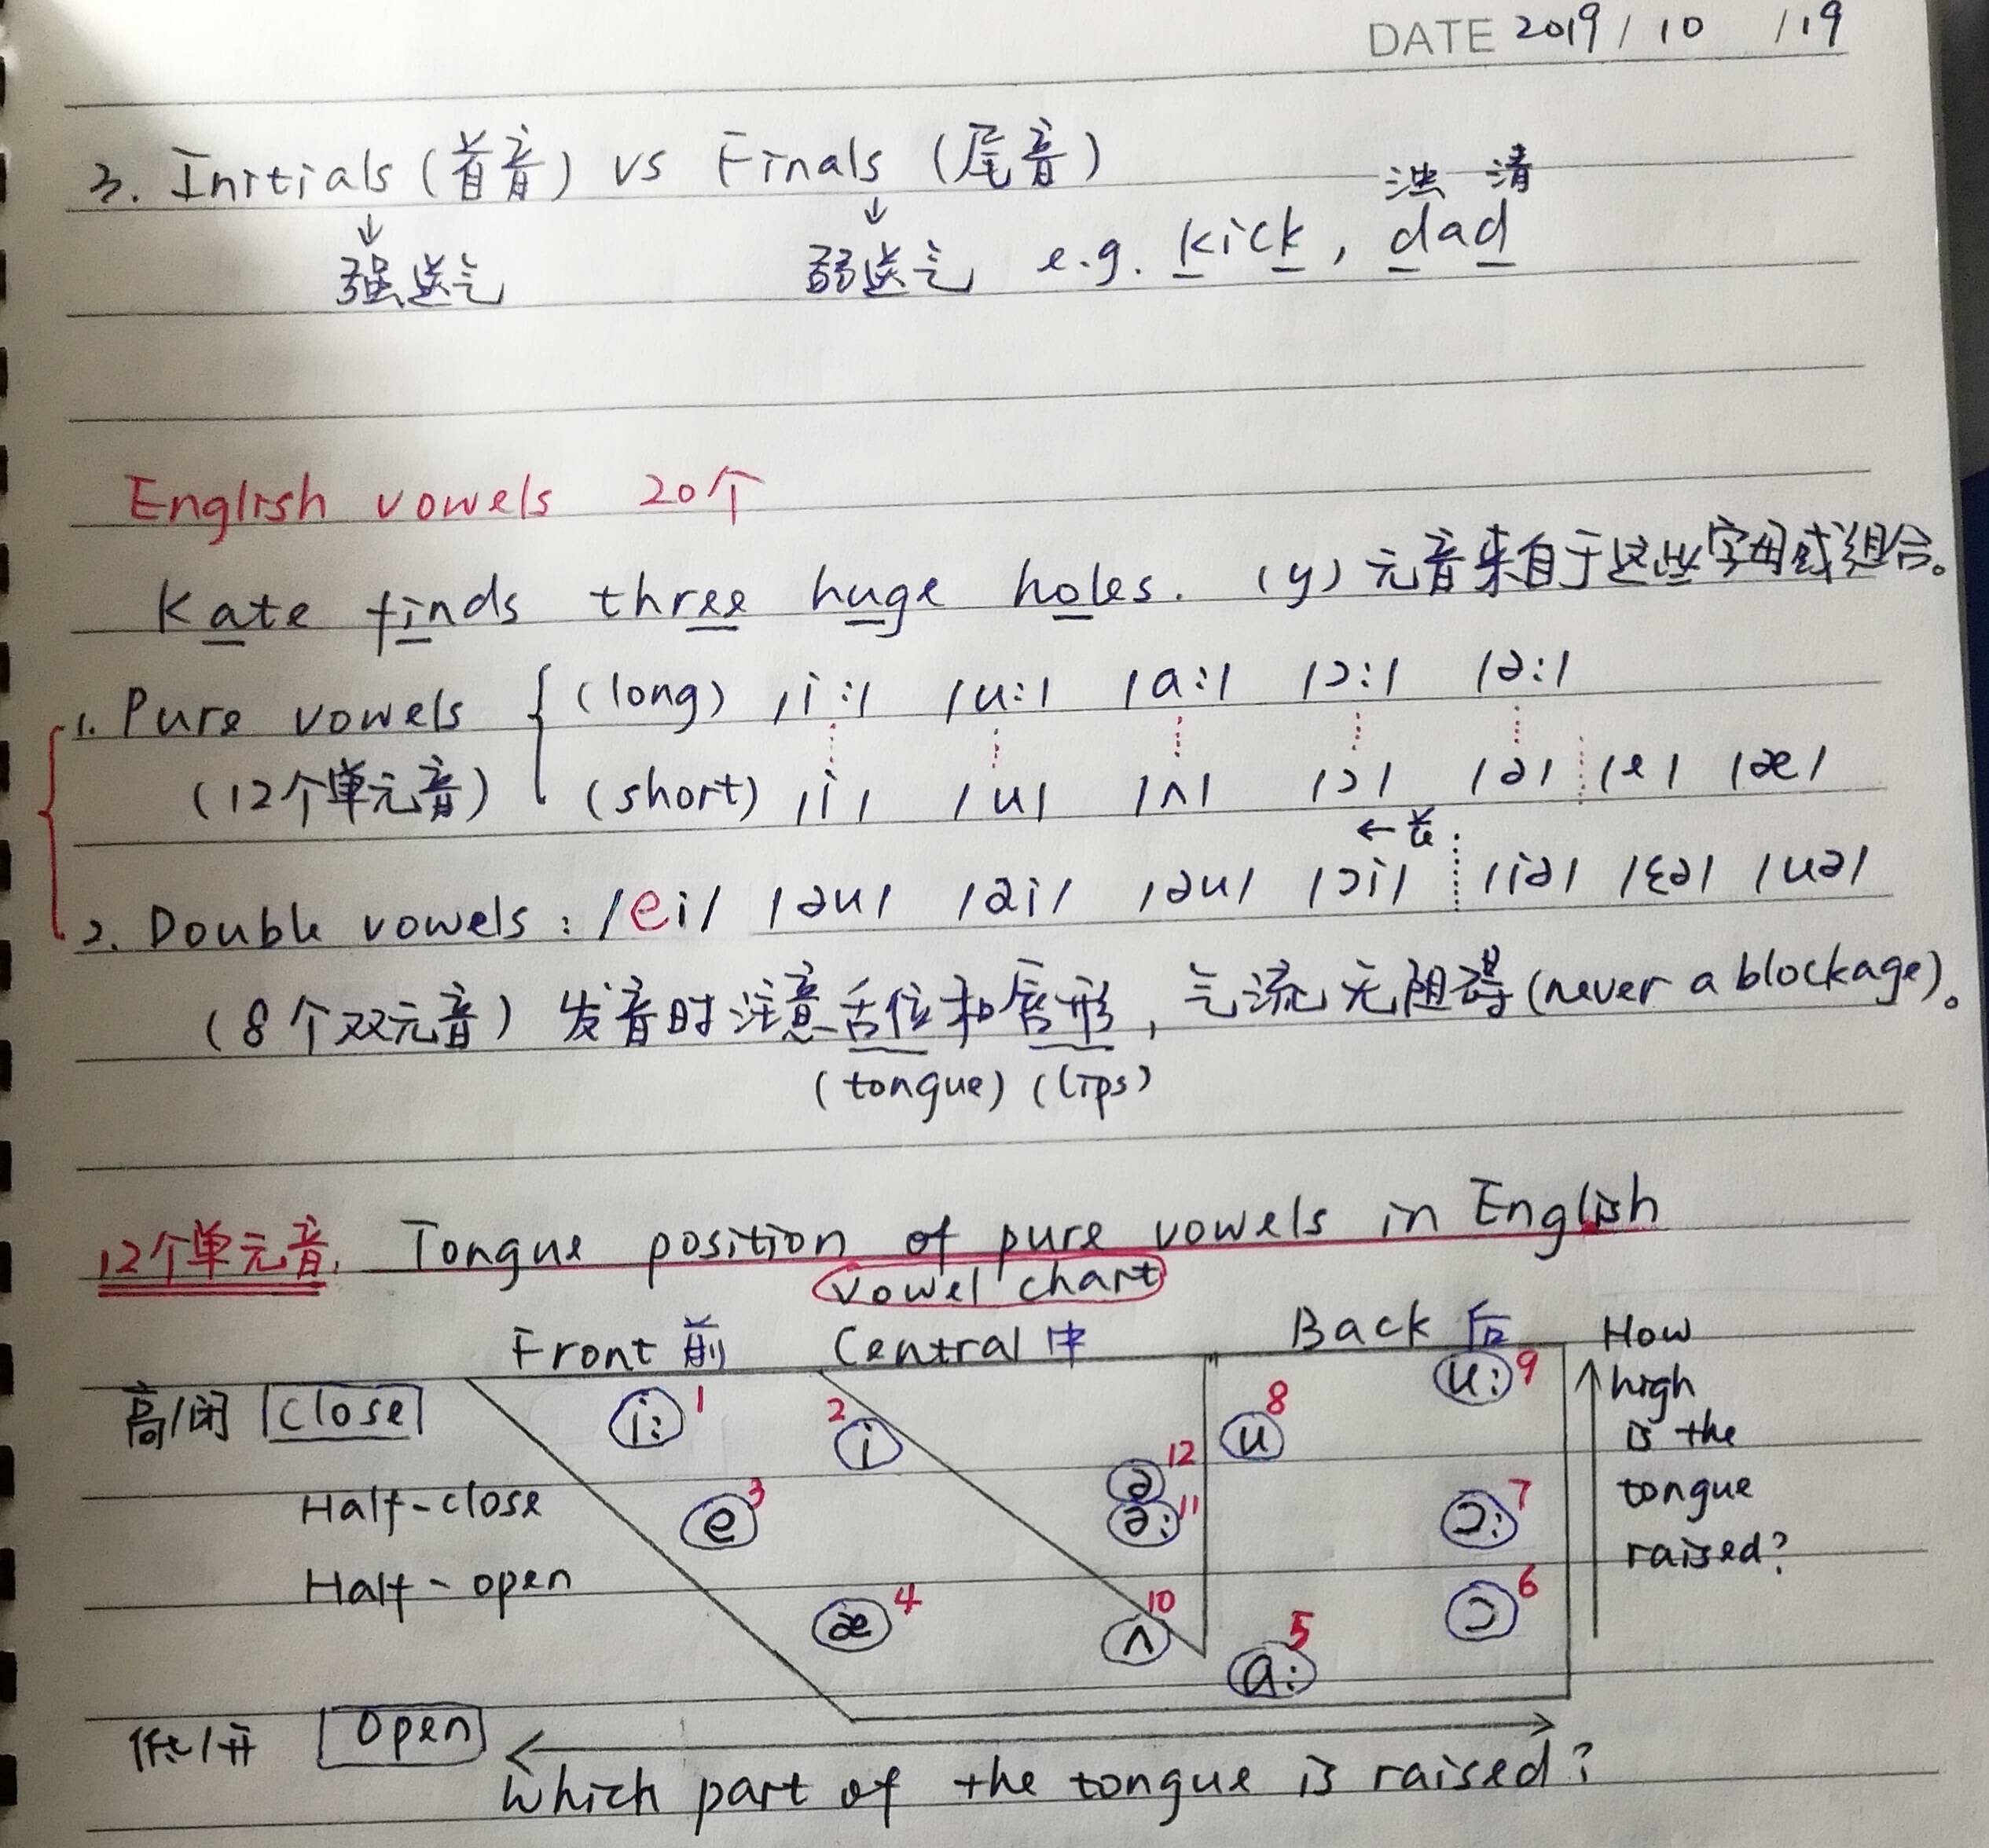 DATE 2019/10/19
3. Initials (首音) vs Finals (尾音)
浊 清
↓ ↓
强送气 弱送气 e.g. kick, dad
English vowels 20个
Kate finds three huge holes. (y) 元音来自于这些字母或组合。
1. Pure vowels { (long) /i:/ /u:/ /a:/ /ɔ:/ /ə:/
(12个单元音) (short) /i/ /u/ /ʌ/ /ɔ/ /ə/ /e/ /æ/
←长
2. Double vowels: /ei/ /əu/ /ai/ /au/ /ɔi/ /iə/ /ɛə/ /uə/
(8个双元音) 发音时注意舌位和唇形, 气流无阻碍 (never a blockage)。
(tongue) (lips)
12个单元音. Tongue position of pure vowels in English
vowel chart
Front 前 Central 中 Back 后 How
高/闭 close i: 1 2 i 8 u u: 9 high
is the
Half-close e 3 ə 12 ə: 11 ɔ: 7 tongue
Half-open æ 4 ʌ 10 ɔ 6 raised?
a: 5
低/开 Open
Which part of the tongue is raised?